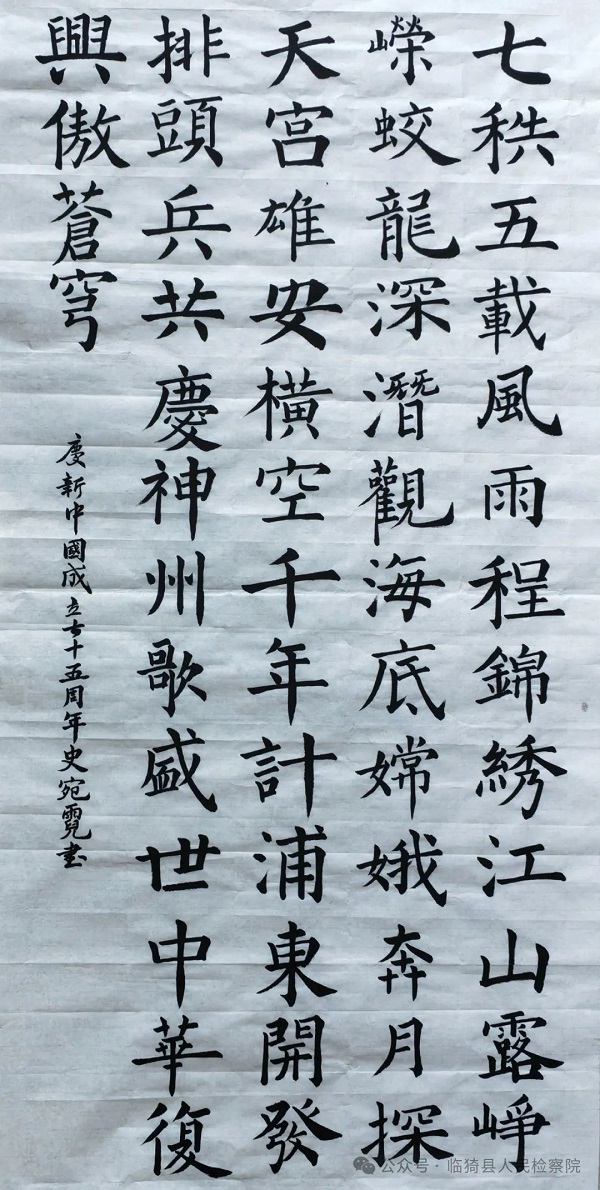 七秩五載風雨程錦綉江山露崢
嶸蛟龍深潛觀海底嫦娥奔月探
天宮雄安橫空千年計浦東開發
排頭兵共慶神州歌盛世中華復
興傲蒼穹
慶新中國成立七十五周年史宛霓書
公众号·临猗县人民检察院